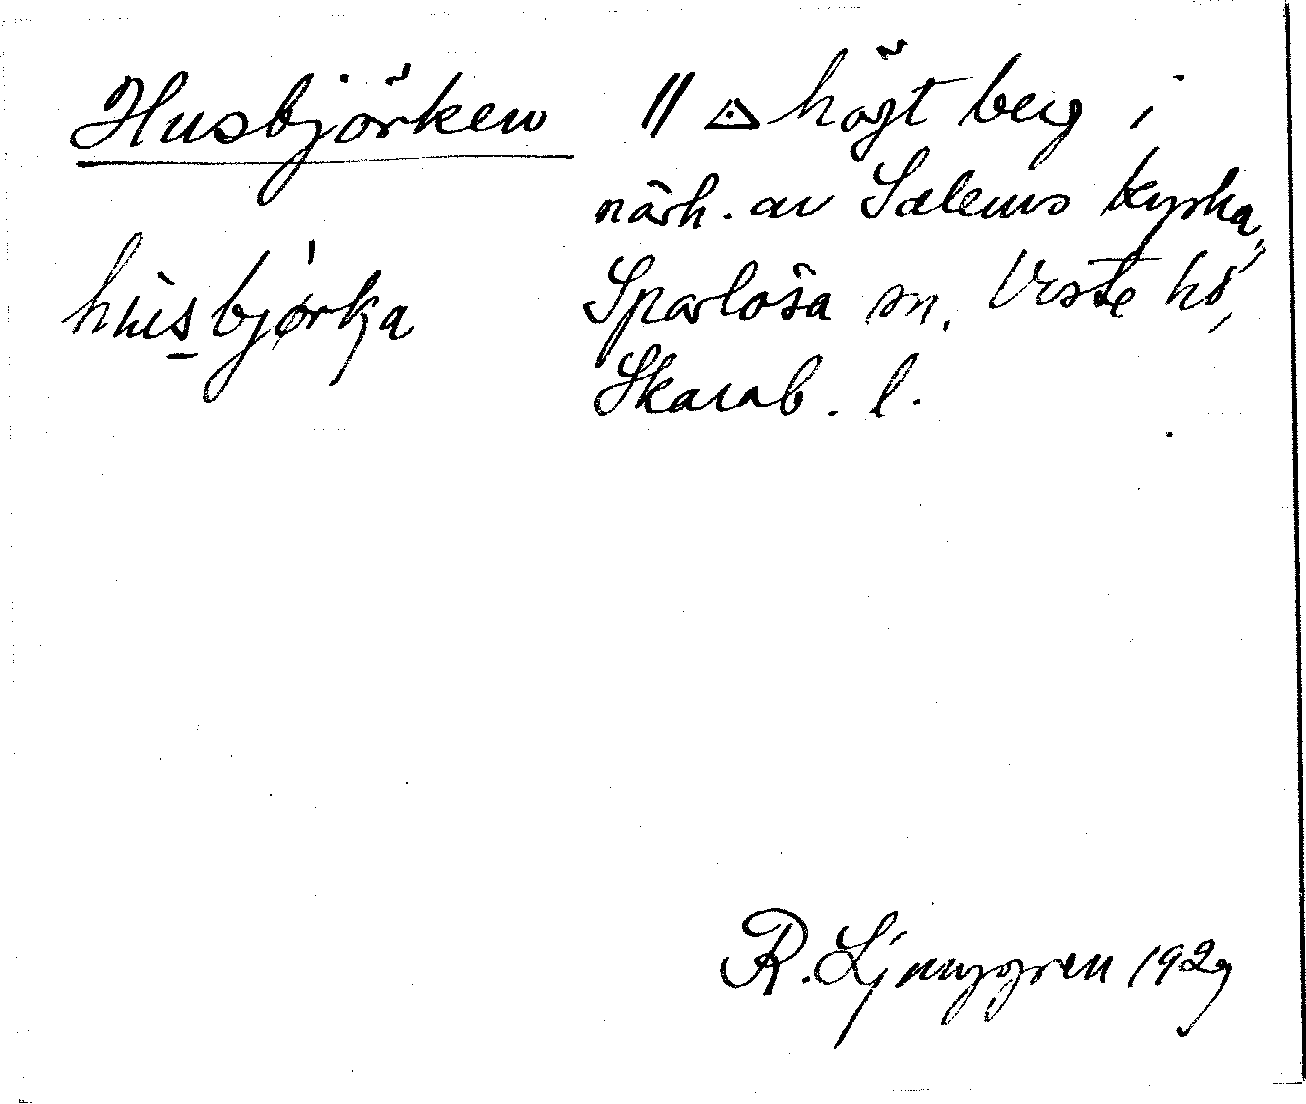 Husbjörken // högt berg i
närh. av Salems kyrka,
husbjørka Sparlösa sn. Viste hd,
Skarab. l.
R. Ljunggren 1929